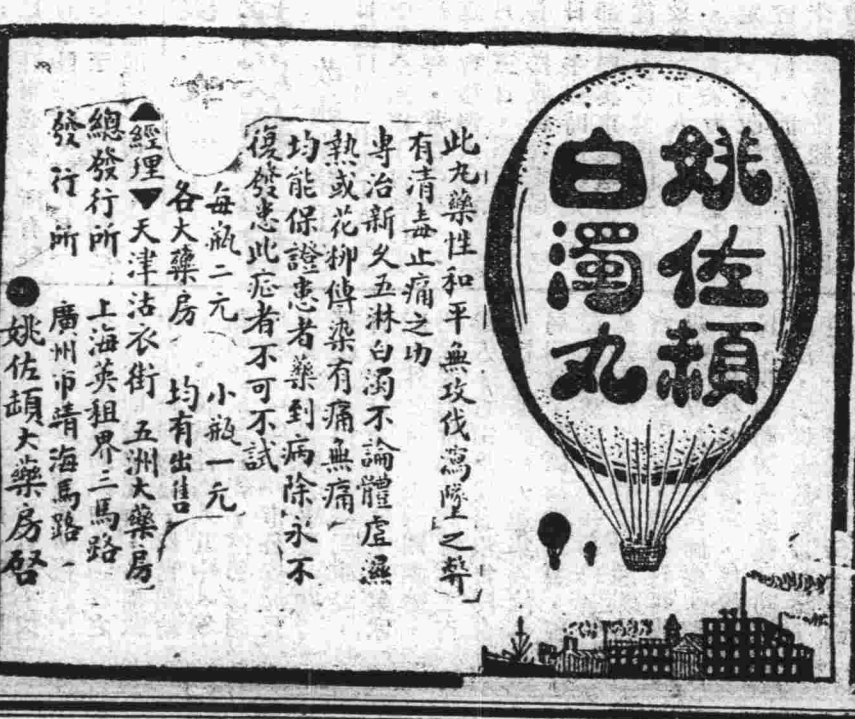 姚佐頳
白濁丸
此丸藥性和平無攻伐瀉墜之弊
有清毒止痛之功
專治新久五淋白濁不論體虛濕
熱或花柳傳染有痛無痛
均能保證患者藥到病除永不
復發患此症者不可不試
每瓶二元 小瓶一元
各大藥房 均有出售
▲經理▼天津沽衣街 五洲大藥房
總發行所 上海英租界三馬路
發行所 廣州市靖海馬路
●姚佐頳大藥房啓